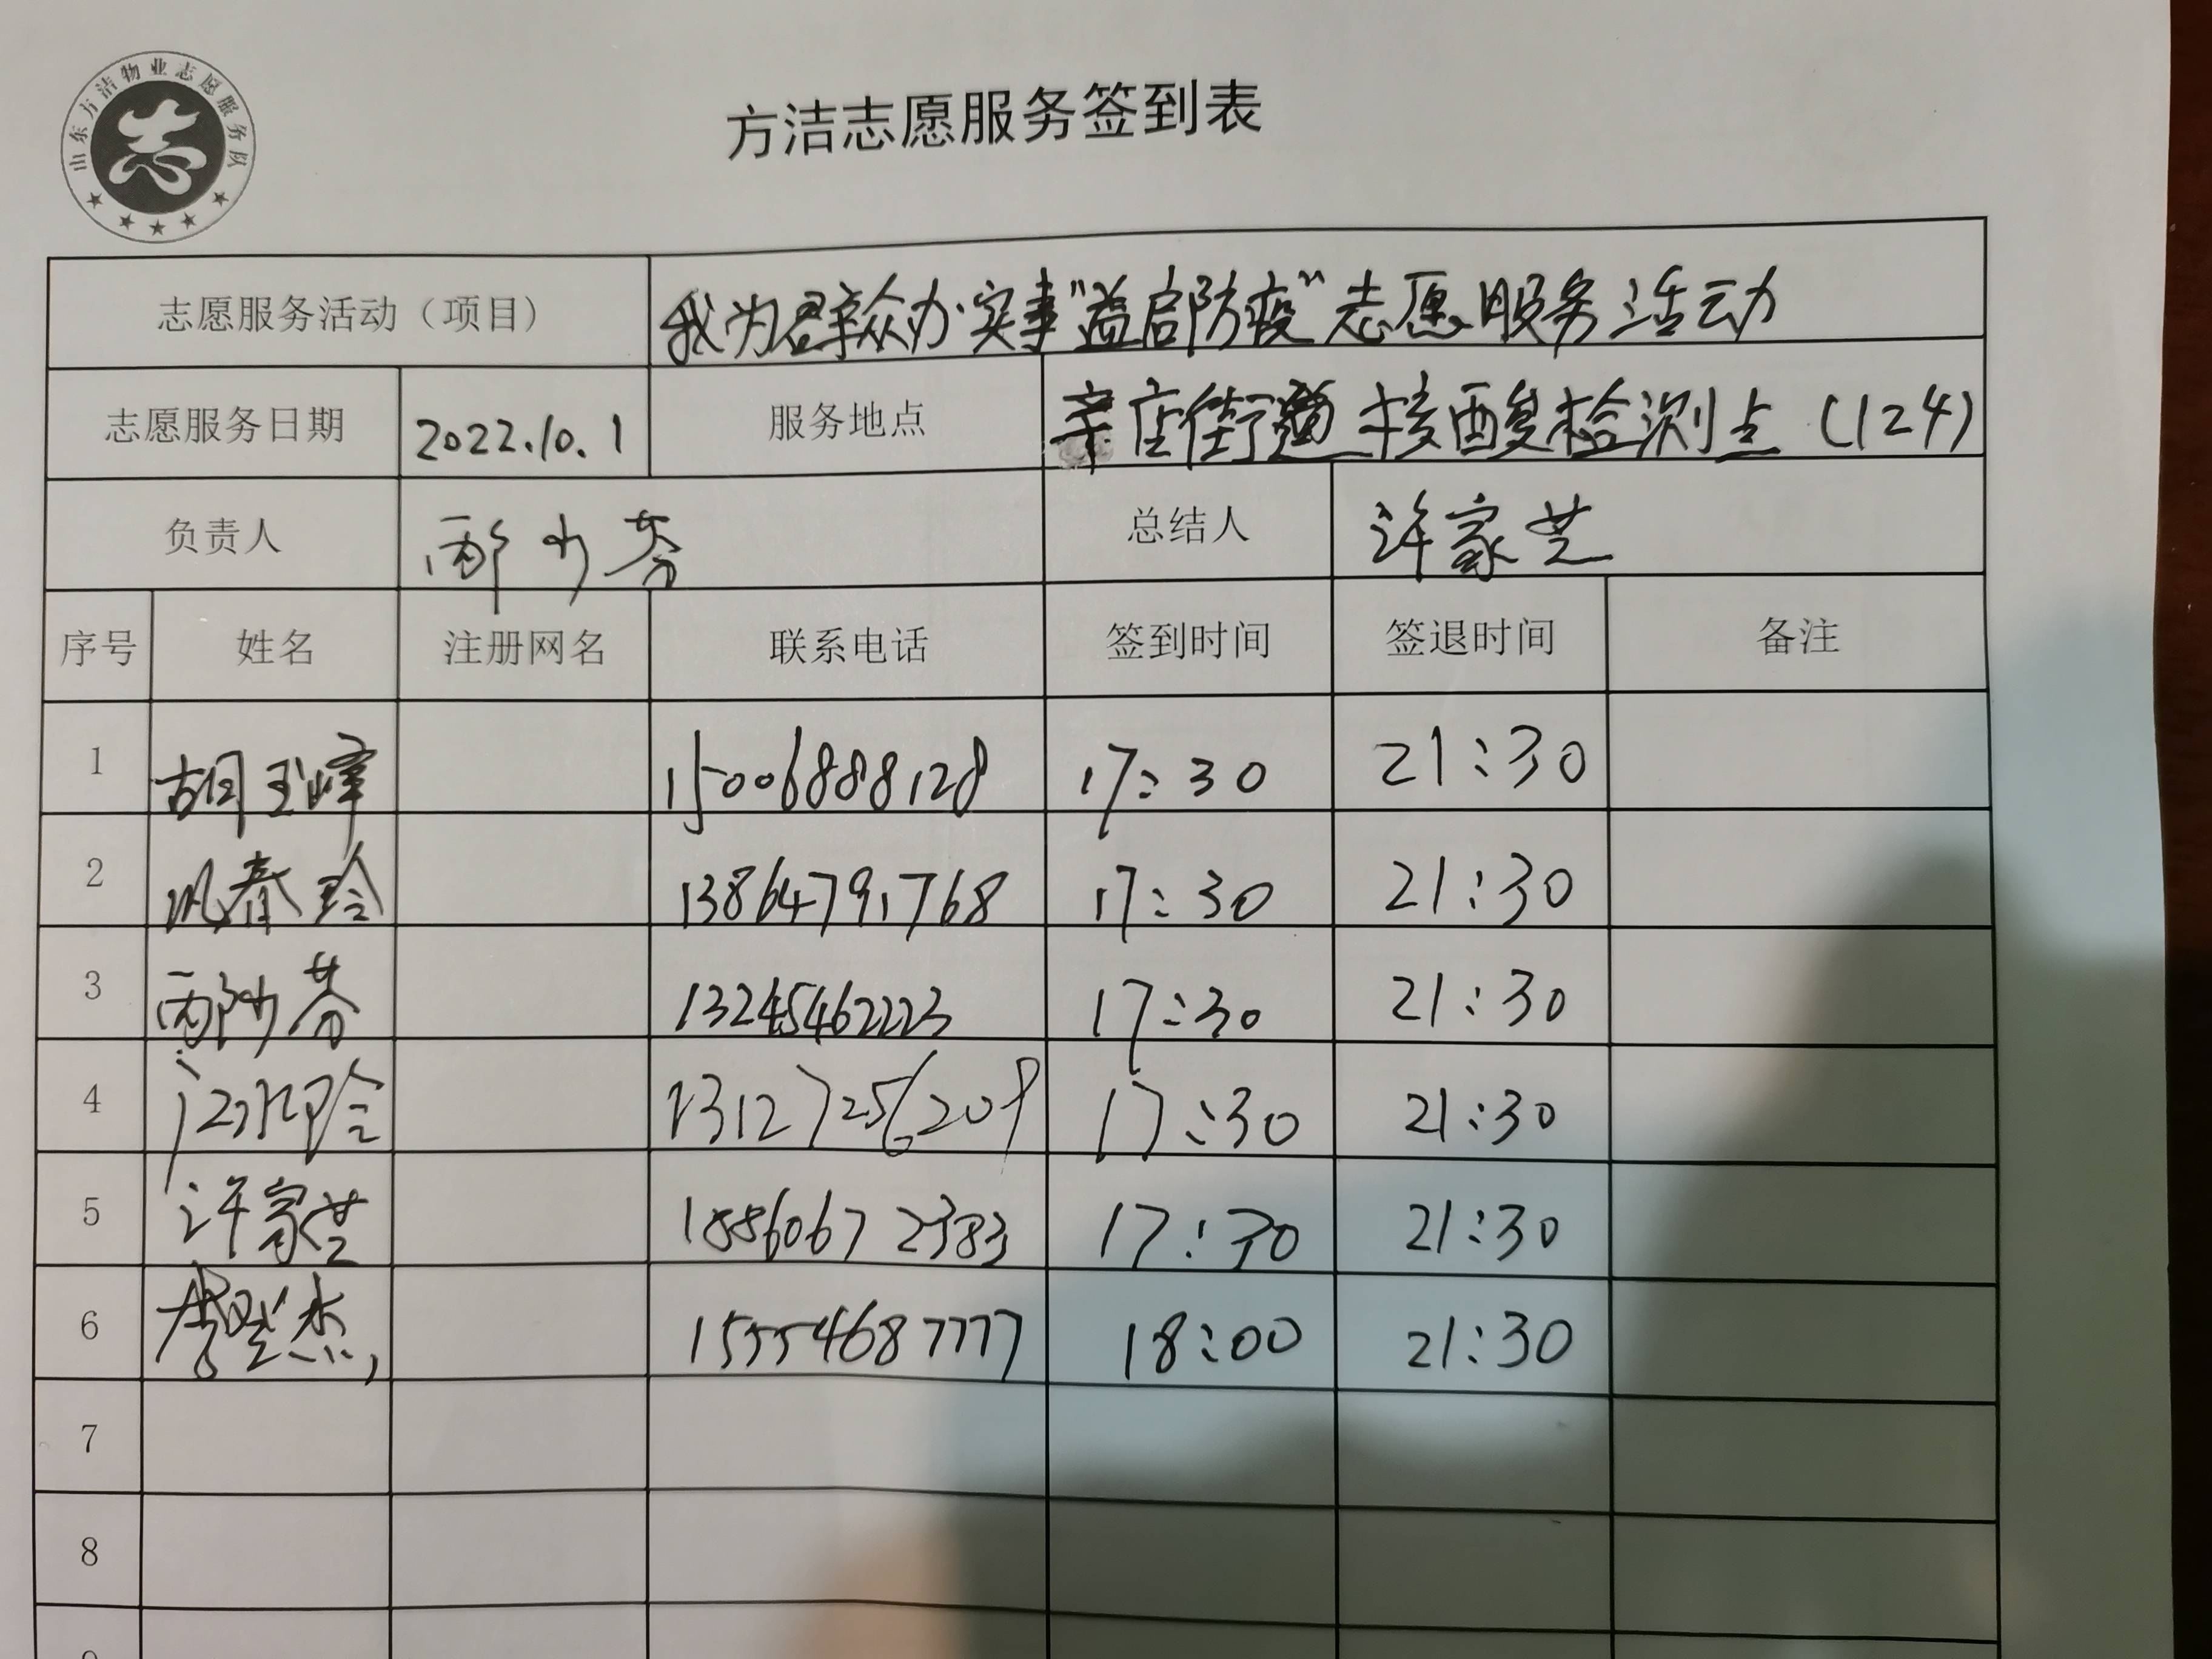 山东方洁物业志愿服务队
志
方洁志愿服务签到表
志愿服务活动（项目） 我为群众办实事"益启防疫"志愿服务活动
志愿服务日期 2022.10.1 服务地点 辛店街道核酸检测点（124）
负责人 邴少芬 总结人 许家芝
序号 姓名 注册网名 联系电话 签到时间 签退时间 备注
1 胡玉峰 15006888128 17:30 21:30
2 春玲 13864791768 17:30 21:30
3 邴少芬 13245462223 17:30 21:30
4 17:30 21:30
5 许家芝 17:30 21:30
6 15554687777 18:00 21:30
7
8
9